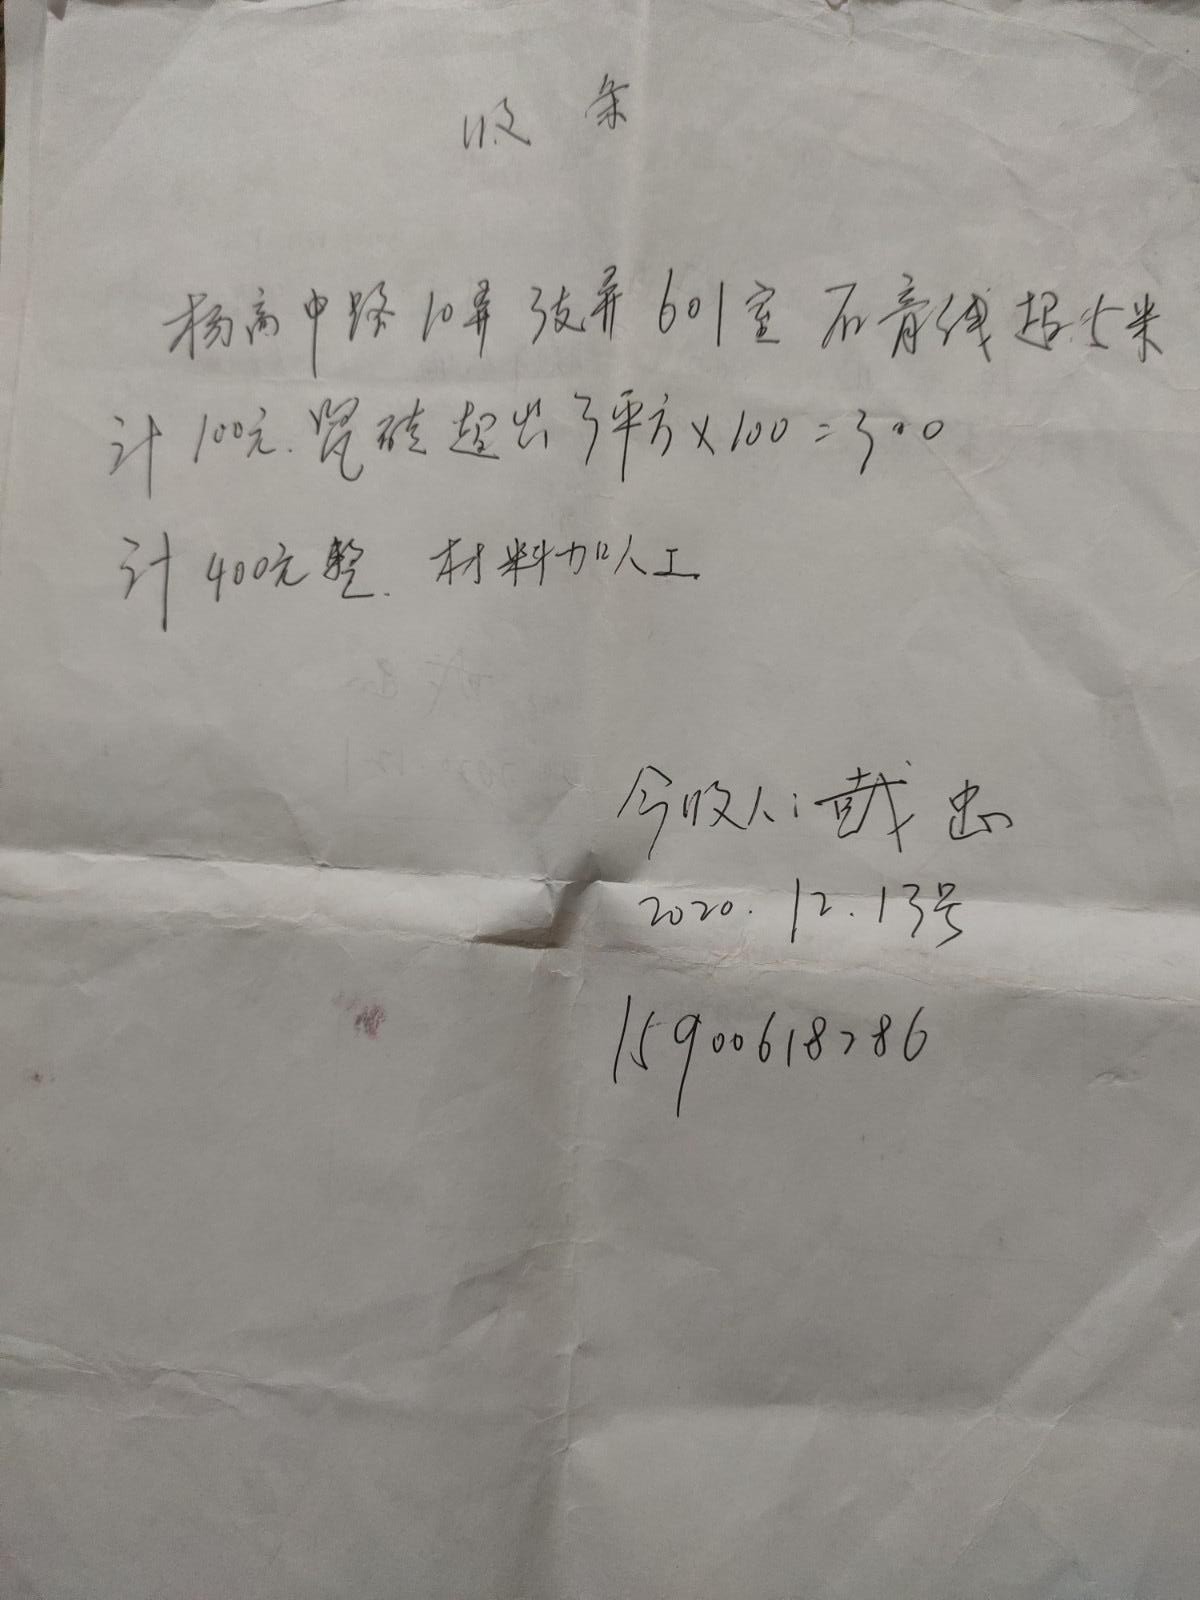 收 条
杨高中路10弄3支弄601室 石膏线超5米
计100元.瓷砖超出3平方×100=300
计400元整. 材料加人工
今收人:戴忠
2020.12.13号
15900618286